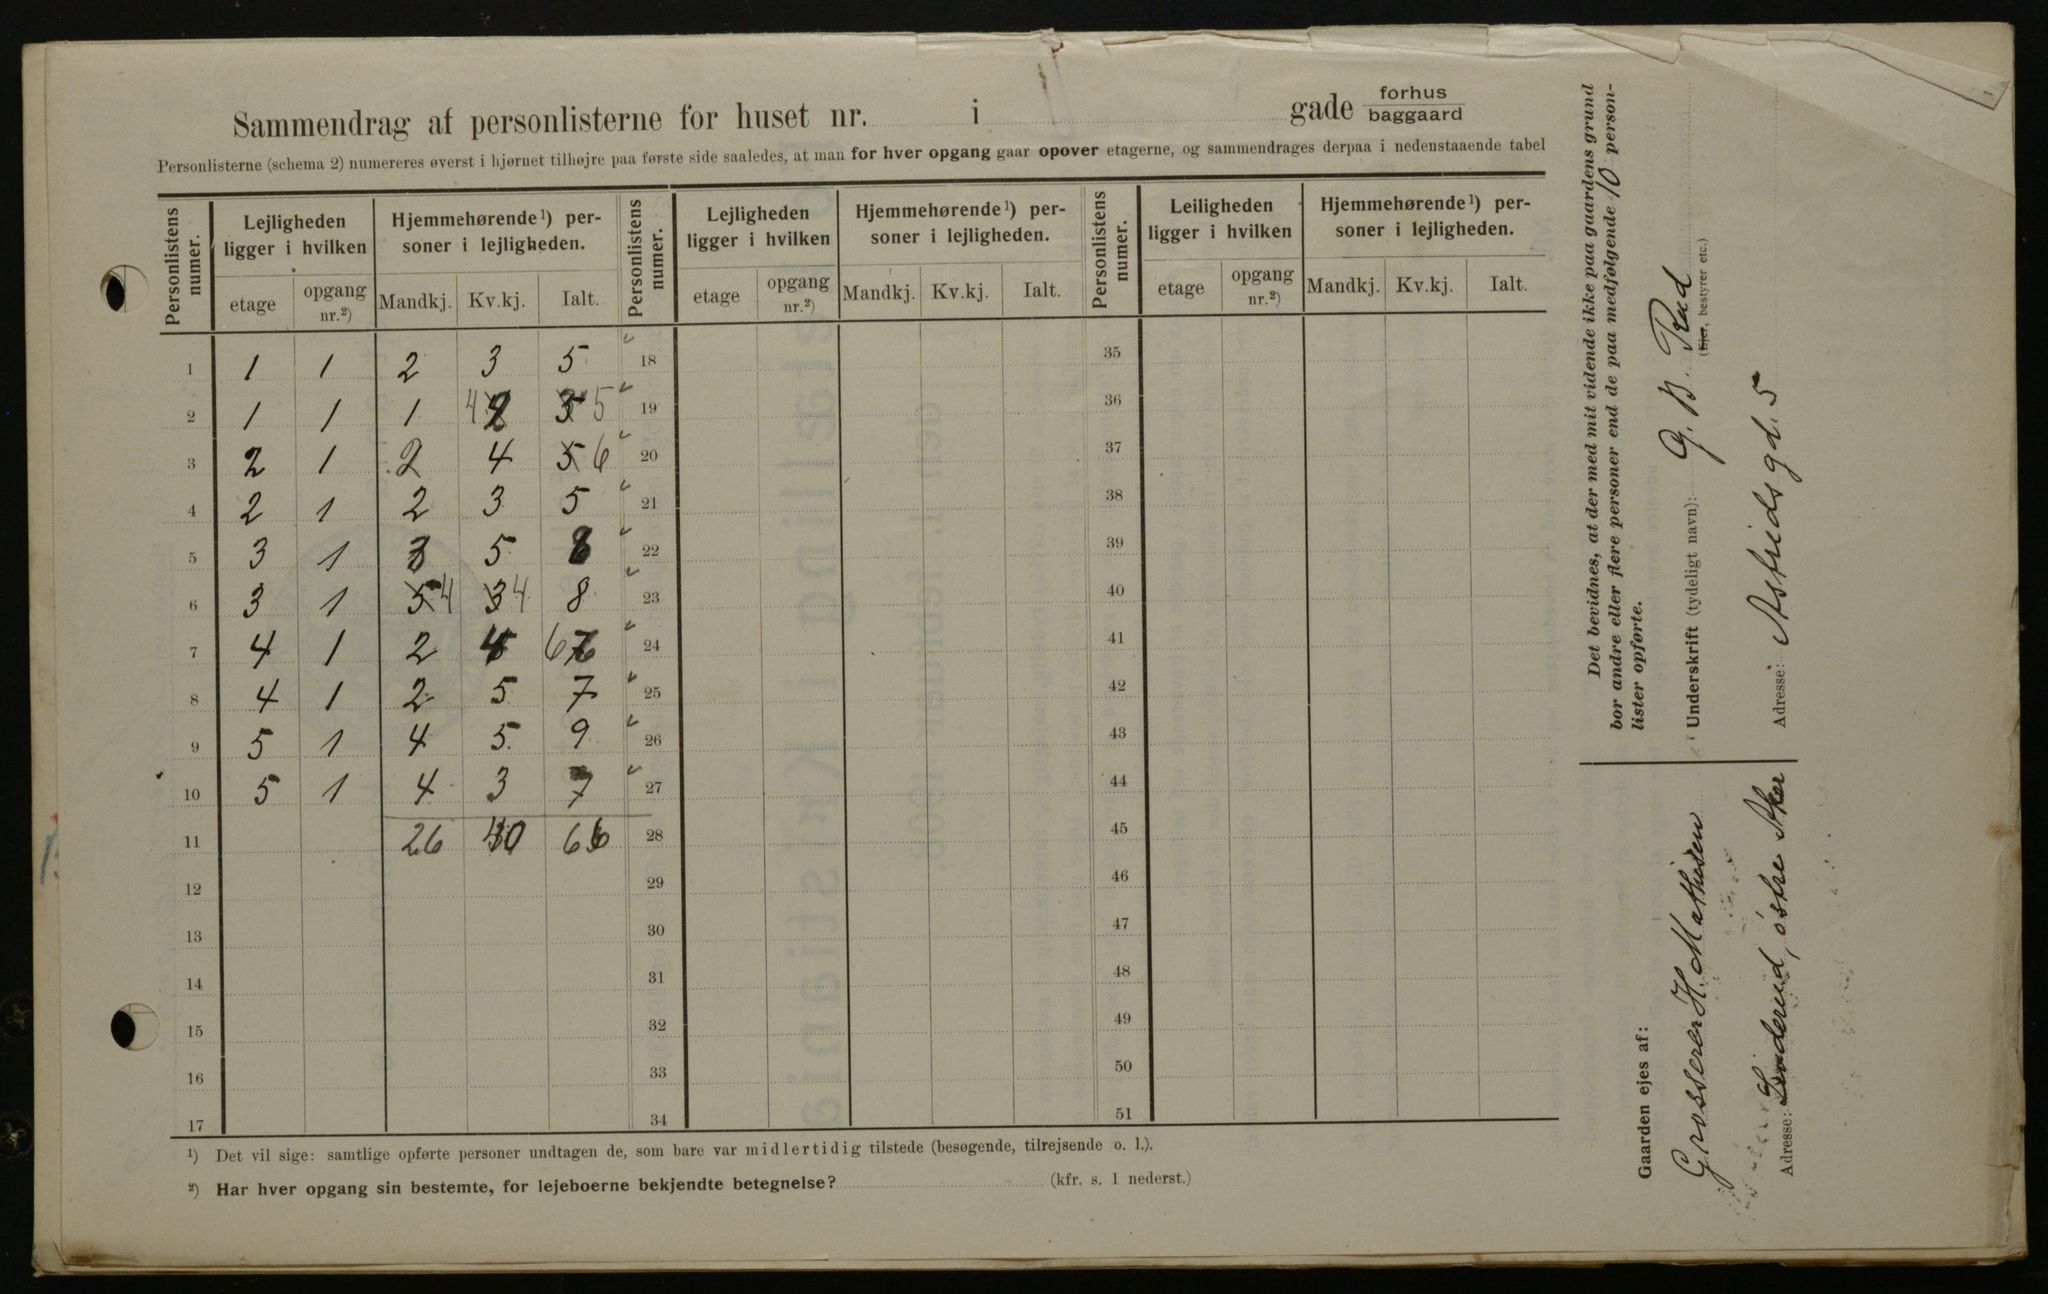 Sammendrag af personlisterne for huset nr. i gade forhus
baggaard
Personlisterne (schema 2) numereres øverst i hjørnet tilhøjre paa første side saaledes, at man for hver opgang gaar opover etagerne, og sammendrages derpaa i nedenstaaende tabel
Personlistens numer. Lejligheden ligger i hvilken Hjemmehørende¹) personer i lejligheden. Personlistens numer. Lejligheden ligger i hvilken Hjemmehørende¹) personer i lejligheden. Personlistens numer. Leiligheden ligger i hvilken Hjemmehørende¹) personer i lejligheden.
etage opgang nr.²) Mandkj. Kv.kj. Ialt. etage opgang nr.²) Mandkj. Kv.kj. Ialt. etage opgang nr.²) Mandkj. Kv.kj. Ialt.
1 1 1 2 3 5 18 35
2 1 1 1 4 2 3 5 19 36
3 2 1 2 4 5 6 20 37
4 2 1 2 3 5 21 38
5 3 1 3 5 8 22 39
6 3 1 5 4 3 4 8 23 40
7 4 1 2 4 6 24 41
8 4 1 2 5 7 25 42
9 5 1 4 5 9 26 43
10 5 1 4 3 7 27 44
11 26 40 66 28 45
12 29 46
13 30 47
14 31 48
15 32 49
16 33 50
17 34 51
¹) Det vil sige: samtlige opførte personer undtagen de, som bare var midlertidig tilstede (besøgende, tilrejsende o. l.).
²) Har hver opgang sin bestemte, for lejeboerne bekjendte betegnelse? (kfr. s. 1 nederst.)
Det bevidnes, at der med mit vidende ikke paa gaardens grund
bor andre eller flere personer end de paa medfølgende 10 person-
lister opførte.
Underskrift (tydeligt navn): G. B. Rud
(Ejer, bestyrer etc.)
Adresse: Astridsgd. 5
Gaarden ejes af:
Grosserer H. Mathisen
Adresse: Linderud, østre Aker